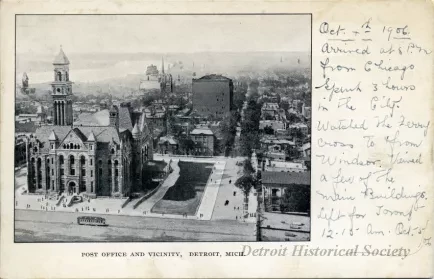 Oct - 5th 1906
Arrived at 6 Pm
from Chicago
Spent 3 hours
in the City.
Watched the Ferry
cross to & from
Windsor. Viewed
a few of the
main Buildings.
Left for Toronto
12.15 Am. Oct 5
POST OFFICE AND VICINITY, DETROIT, MICH.
Detroit Historical Society